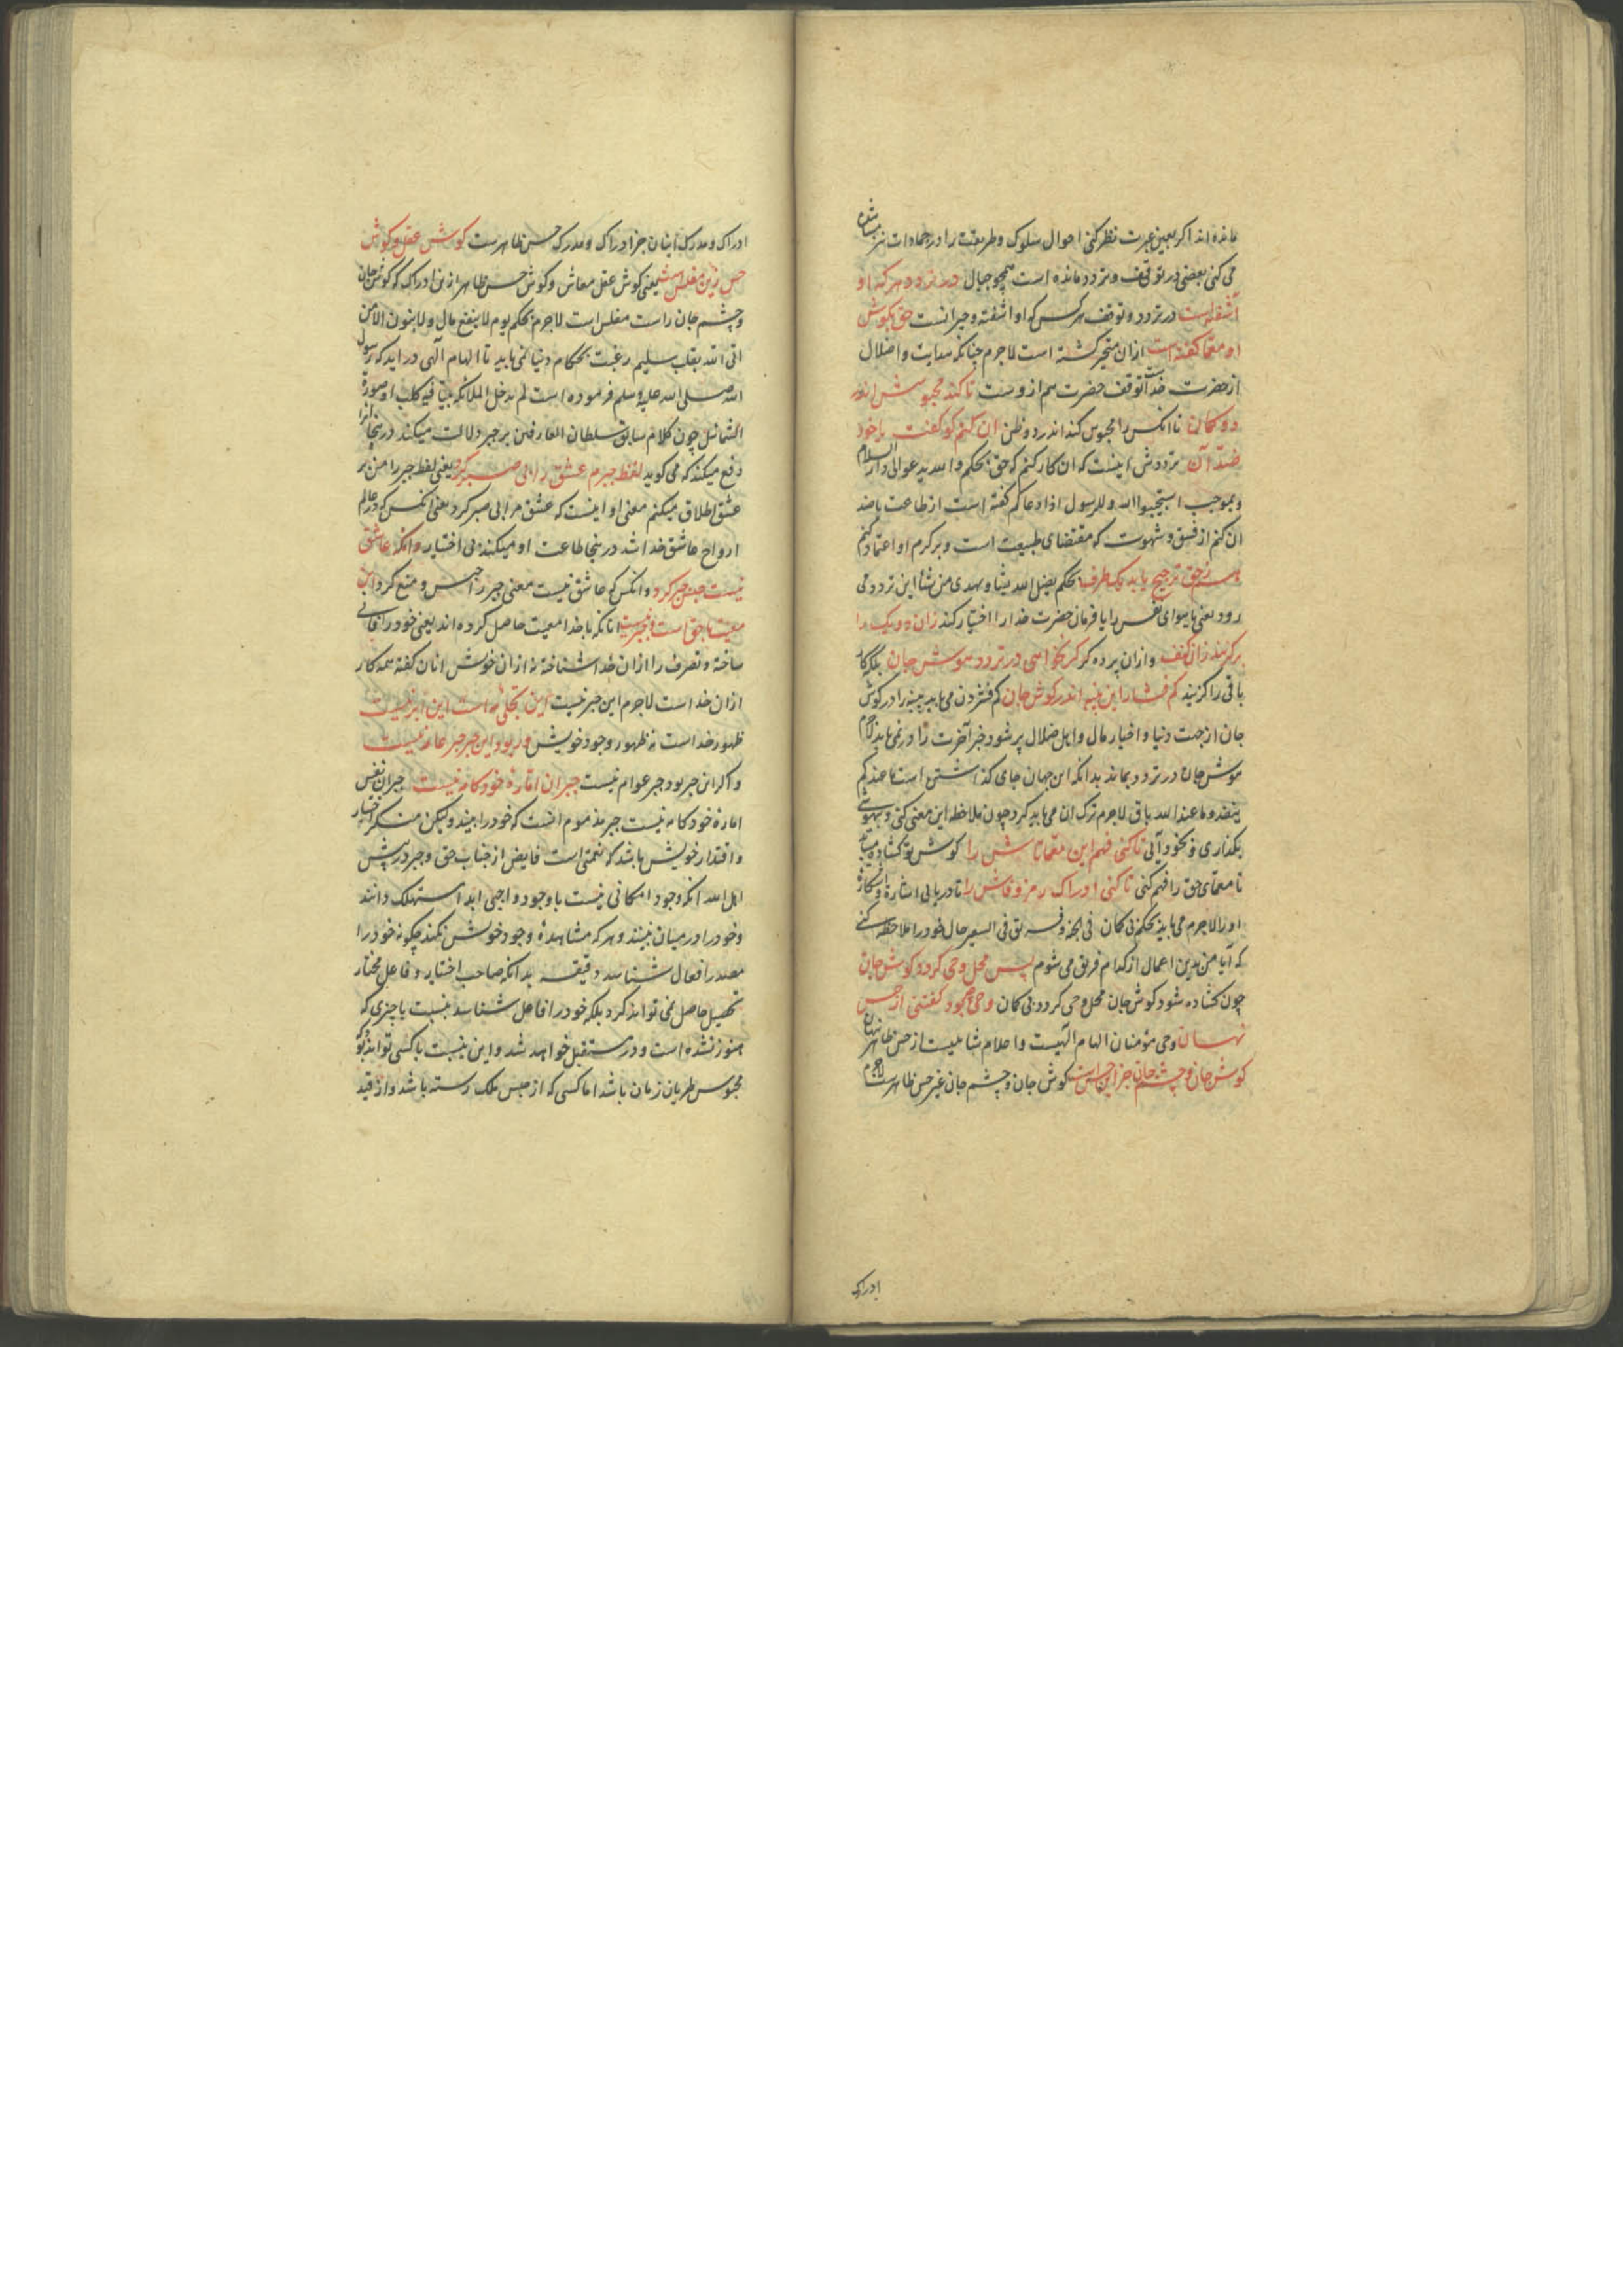 مانده اند اکر بعین عبرت نظر کنی احوال سلوک وطریقت را در جمادات نیز مشاهده
می کنی بعضی در توقف و تردد مانده است همچو جبال در تردد هر که او
آشفته است در تردد و توقف هر کس که او آشفته و حیرانست حق بکوش
او معما کفته است ازان متحیر کشته است لاجرم چنانکه هدایت و اضلال
از حضرت خداست توقف حضرت هم ازوست تا کند محبوسش اندر
دو کمان تا انکس را محبوس کند اندر دو ظن ان کنم کو کفت یا خود
ضد آن ترددش اینست که ان کار کنم که حق بحکم والله یدعو الی دار السلام
و بموجب استجیبوا لله وللرسول اذا دعاکم کفته است از طاعت یا ضد
ان کنم از فسق و شهوت که مقتضای طبیعت است و بر کرم او اعتماد کنم
هم ز حق ترجیح یابد یک طرف بحکم یضل الله یشا ویهدی من یشا این تردد می
رود یعنی یا هوای نفس را یا فرمان حضرت خدا را اختیار کند زان دو یک را
برکزیند زان کنف وازان پرده کر نخواهی در تردد هوش جان بلکه کار
باقی را کزیند کم فشار این پنبه اندر کوش جان کم فشردن می باید پنبه را در کوش
جان از جهت دنیا و اخبار مال و اهل ضلال پر شود خبر آخرت را در نمی یابد لاجرم
هوش جان در تردد بماند بدانکه این جهان جای کذاشتن است ما عندکم
ینفد وما عند الله باق لاجرم ترک ان می باید کرد چون ملاحظه این معنی کنی و بیهوشی
بکذاری و بخود آیی تا کنی فهم این معماتاش را کوش تو کشاده می شود
تا معمای حق را فهم کنی تا کنی ادراک رمز و فاش را تا دریابی اشاره و اشکار
اورا لاجرم می باید بحکم بی کمان فی الجنه وفریق فی السعیر حال خود را ملاحظه کنی
که آیا من بدین اعمال از کدام فریق می شوم پس محل وحی کردد کوش جان
چون کشاده شود کوش جان محل وحی کردد بی کمان وحی چه بود کفتنی از حس
نهان وحی مؤمنان الهام الهیست واعلام شاهیست از حس ظاهر نهان
کوش جان و چشم جان جز این حس است کوش جان و چشم جان غیر حس ظاهرست لاجرم
ادراک
ادراک و مدرک ایشان جز ادراک و مدرک حس ظاهرست کوش عقل و کوش
حس زین مفلس است یعنی کوش عقل معاش و کوش حس ظاهر ازین ادراک که کوش جان
و چشم جان راست مفلس است لاجرم بحکم یوم لا ینفع مال ولا بنون الا من
اتی الله بقلب سلیم رغبت بحکام دنیا نمی باید تا الهام الهی در اید که رسول
الله صلی الله علیه وسلم فرموده است لم یدخل الملائکه بیتا فیه کلب او صورة
التماثیل چون کلام سابق سلطان العارفین بر جبر دلالت میکند درینجا انرا
دفع میکند که می کوید لفظ جبرم عشق را بی صبر کرد یعنی لفظ جبر را من بر
عشق اطلاق میکنم معنی او اینست که عشق مرا بی صبر کرد یعنی انکس که در عالم
ارواح عاشق خدا شد درینجا طاعت او میکند بی اختیار وانکه عاشق
نیست حبس جبر کرد وانکس که عاشق نیست معنی جبر را حبس و منع کرد این
معیت با حق است و جبر نیست انانکه با خدا معیت حاصل کرده اند یعنی خود را فانی
ساخته و تصرف را ازان خدا شناخته نه ازان خویش انان کفته همه کار
ازان خداست لاجرم این جبر نیست این تجلی مه است این ابر نیست
ظهور خداست نه ظهور وجود خویش ور بود این جبر جبر عامه نیست
و اکر این جبر بود جبر عوام نیست جبر ان اماره خودکامه نیست جبر ان نفس
اماره خودکامه نیست جبر مذموم انست که خود را بیند ولیکن منکر اختیار
و اقتدار خویش باشد که نعمتی است فایض از جناب حق و جبر در پیش
اهل الله انکه وجود امکانی نیست با وجود واجبی ابدا مستهلک دانند
و خود را در میان نبینند و هر که مشاهدهٔ وجود خویش نکند چکونه خود را
مصدر افعال شناسد دقیقه بدانکه صاحب اختیار و فاعل مختار
تحصیل حاصل نمی تواند کرد بلکه خود را فاعل شناسد بنسبت با چیزی که
هنوز نشده است و در مستقبل خواهد شد و این بنسبت با کسی تواند بود که
محبوس طریان زمان باشد اما کسی که از حبس ملک رسته باشد و از قید